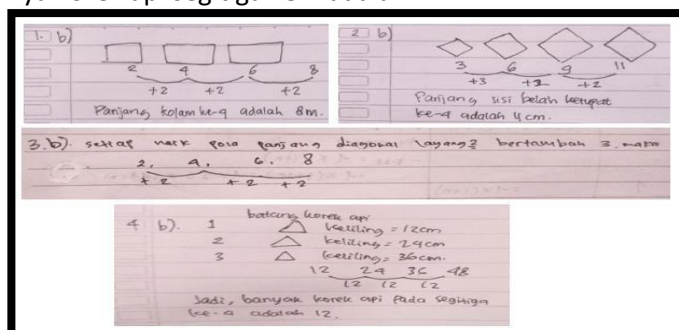 1. b)
2 4 6 8
+2 +2 +2
Panjang kolam ke-4 adalah 8m.
2 b)
3 6 9 11
+3 +2 +2
Panjang sisi belah ketupat
ke-4 adalah 11 cm.
3.b). setiap naik pola panjang diagonal layang2 bertambah 3, maka
2, 4, 6, 8
+2 +2 +2
4 b). batang korek api
1 keliling = 12cm
2 keliling = 24cm
3 keliling = 36cm.
12 24 36 48
12 12 12
Jadi, banyak korek api pada segitiga
ke-4 adalah 12.